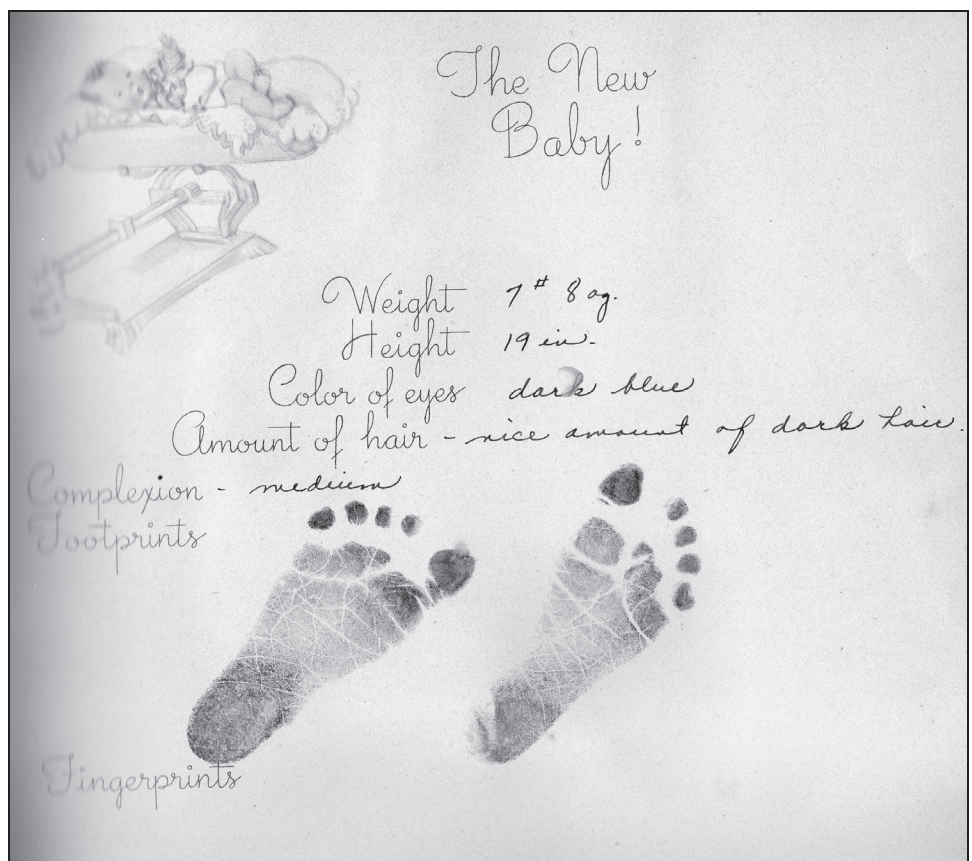 The New
Baby!
Weight 7# 8 oz.
Height 19 in.
Color of eyes dark blue
Amount of hair - nice amount of dark hair.
Complexion - medium
Footprints
Fingerprints